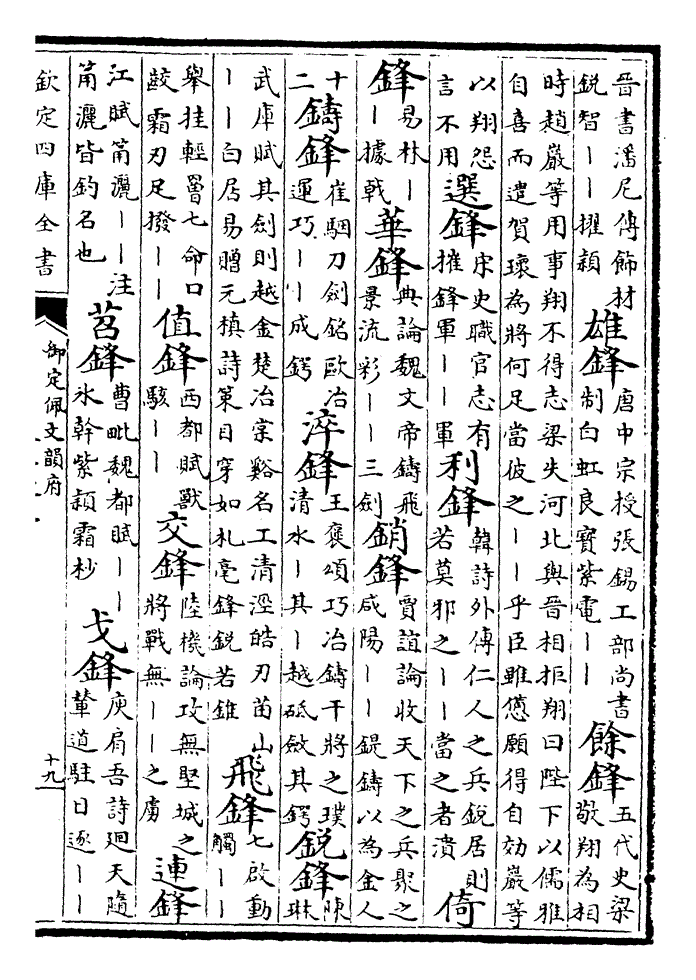 晉書潘尼傳飾材
銳智丨丨擢穎
雄鋒
唐中宗授張錫工部尚書
制白虹良寶紫電丨丨
餘鋒
五代史梁
敬翔為相
時趙巖等用事翔不得志梁失河北與晉相拒翔曰陛下以儒雅
自喜而遣賀瓌為將何足當彼之丨丨乎臣雖憊願得自効巖等
以翔怨
言不用
選鋒
宋史職官志有
摧鋒軍丨丨軍
利鋒
韓詩外傳仁人之兵銳居則
若莫邪之丨丨當之者潰
倚
鋒
易林丨
丨據戟
華鋒
典論魏文帝鑄飛
景流彩丨丨三劍
銷鋒
賈誼論收天下之兵聚之
咸陽丨丨鍉鑄以為金人
十
二
鑄鋒
崔駰刀劍銘歐冶
運巧丨丨成鍔
淬鋒
王褒頌巧冶鑄干將之璞
清水丨其丨越砥斂其鍔
銳鋒
陳
琳
武庫賦其劍則越金楚冶棠谿名工清涇皓刃苗山
丨丨白居易贈元稹詩策目穿如札毫鋒銳若錐
飛鋒
七啟動
觸丨丨
舉挂輕罾七命口
齩霜刃足撥丨丨
值鋒
西都賦獸
駭丨丨
交鋒
陸機論攻無堅城之
將戰無丨丨之虜
連鋒
江賦筩灑丨丨注
筩灑皆釣名也
苕鋒
曹毗魏都賦丨丨
氷幹紫穎霜杪
戈鋒
庾肩吾詩廻天隨
輦道駐日逐丨丨
欽定四庫全書
御定佩文韻府
十九